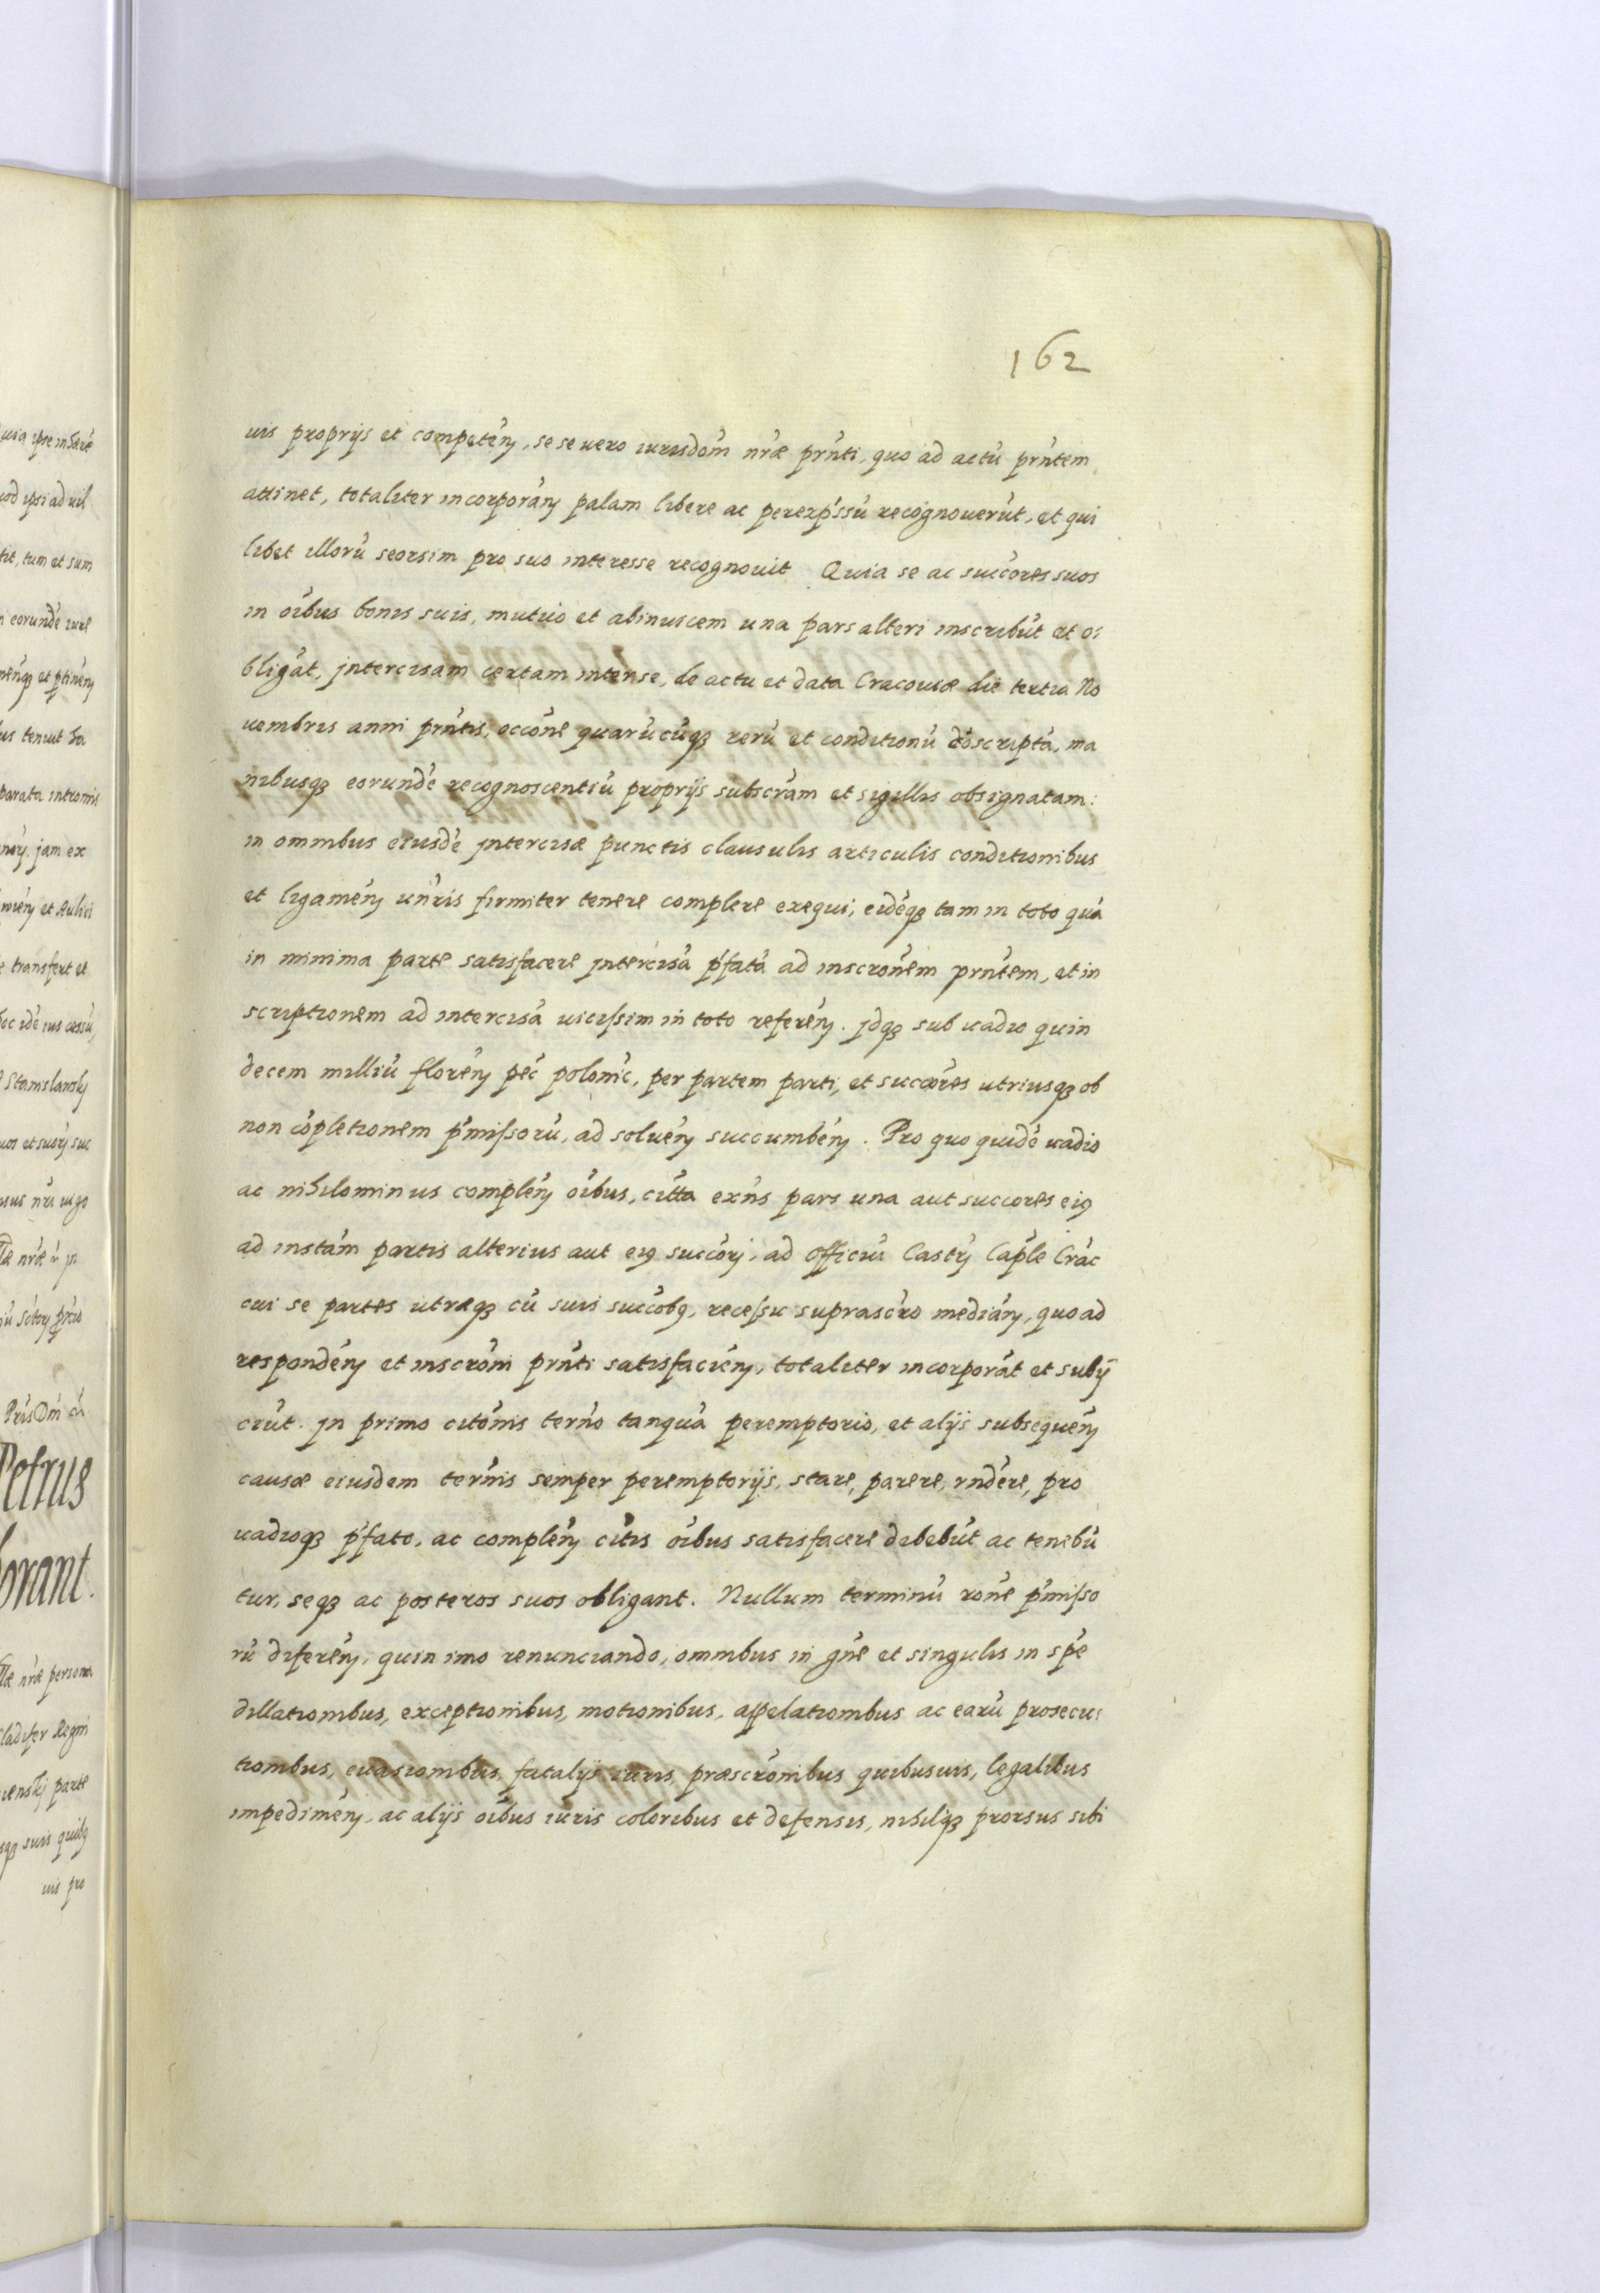 162
uis proprijs et competén, se se uero iurisdóm nrǽ prńti, quo ad actú prńtem
attinet, totaliter incorporán palam libere ac perexpŕssú recognouerút, et qui
libet illorú seorsim pro suo interesse recognouit Quia se ac succóres suos
in óibus bonis suis, mutuo et abinuicem una pars alteri inscribút et o:
bligát, jntercisam certam intense, de actu et data Cracouiæ die tertia No
uembris anni prńtis, occóne quarúcúq3 rerú et conditionú cóscriptá, ma
nibusq3 eorundé recognoscentiú proprijs subscrám et sigillis obsignatam:
in omnibus eiusdé jntercisæ punctis clausulis articulis conditionibus
et ligamén uńris firmiter tenere complere exequi, eidéq3 tam in toto quá
in minima parte satisfacere jntercisá pŕfatá ad inscrónem prńtem, et in
scriptionem ad intercisá uicissim in toto referén. jdq3 sub uadio quin
decem milliú florén péc polonic, per partem parti, et succóres utriusq3 ob
non cópletionem pŕmissorú, ad soluén succumbén. Pro quo quidé uadio
ac nihilominus complén óibus, citta exńs pars una aut succores ei9
ad instám partis alterius aut ei9 succórj, ad Officiú Castrj Cáple Crác
cui se partes utræq3 cú suis succób9, recessu suprascŕo medián, quo ad
respondén et inscróni prńti satisfacién, totaliter incorporát et subij
ciút. jn primo citónis terńo tanquá peremptorio, et alijs subsequén
causæ eiusdem terńis semper peremptorijs, stare, parere, rńdere, pro
uadioq3 pŕfato, ac complén cítis óibus satisfacere debebút ac tenebú
tur, seq3 ac posteros suos obligant. Nullum terminú rońe pŕmisso
rú diferén, quin imo renunciando, omnibus in gńe et singulis in spé
dillationibus, exceptionibus, motionibus, appelationibus ac earú prosecu:
tionibus, euasionibus, fatalijs iuris, præscrónibus quibusuis, legalibus
impedimén, ac alijs óibus iuris coloribus et defensis, nihilq3 prorsus sibi